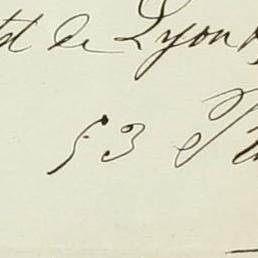 de Lyon
53